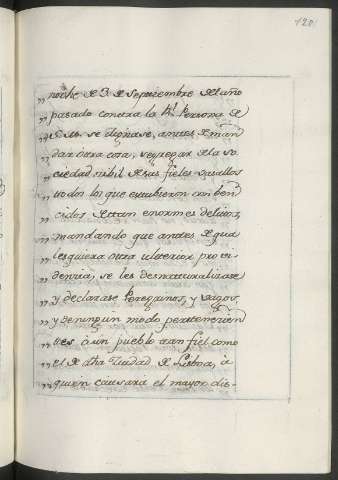 120
„ noche de 3. de Septiembre del año
„ pasado contra la Rl. Persona de
„ S. M. se dignase, antes de man
„ dar otra cosa, segregar de la so
„ ciedad civil de sus fieles vasallos
„ todos los que estubieron conben
„ cidos de tan enormes delitos,
„ mandando que antes de qua
„ lesquiera otra ulterior provi
„ dencia, se les desnaturalizase
„ y declarase Peregrinos, y vagos,
„ y de ningun modo pertenecien
„ tes à un pueblo tan fiel como
„ el de dha Ciudad de Lisboa, à
„ quien causara el mayor dis-